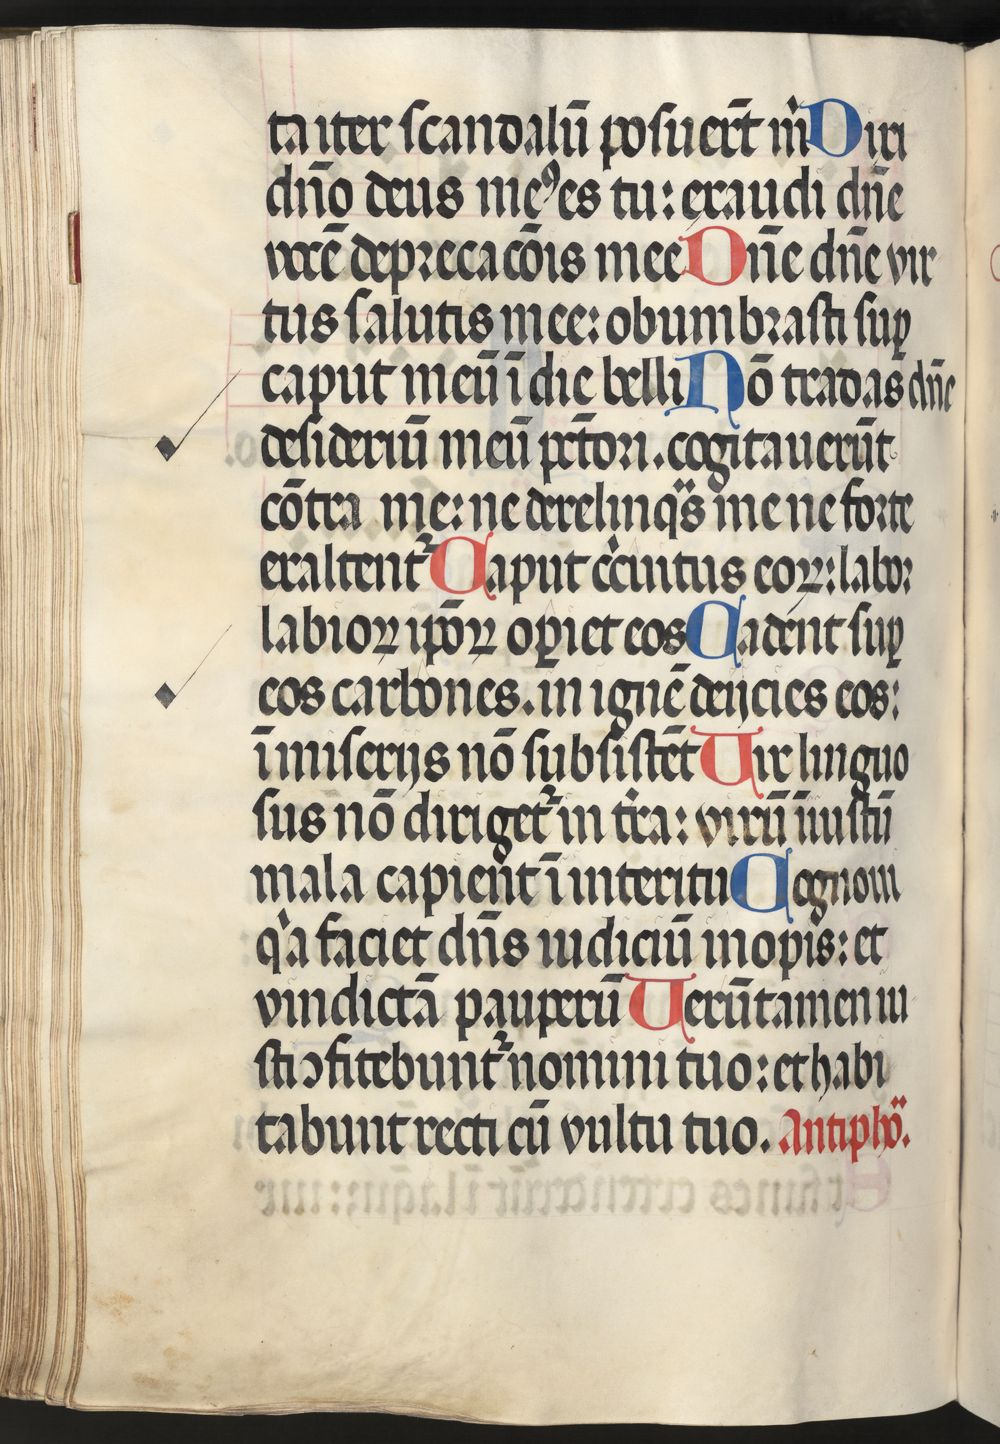 ta iter scandalū posuert̄ m̄i Dixi
dn̄o deus me⁹ es tu: exaudi dn̄e
vocē deprecacōis mee Dn̄e dn̄e vir
tus salutis mee: obumbrasti suꝑ
caput meū ī die belli Nō tradas dn̄e
desideriū meū pctōri. cogitauerūt
cōtra me: ne derelinqͣs me ne forte
exaltentᷣ Caput cͥcuitus eoꝝ: labor
labioꝝ ipōꝝ oꝑiet eos Cadent suꝑ
eos carbones. in ignē deijcies eos:
ī miserijs nō subsistēt Uir linguo
sus nō dirigetᷣ in tr̄a: virū iniustū
mala capient ī interitu Cognoui
qͥa faciet dn̄s iudiciū inopis: et
vindictā pauperū Uerūtamen iu
sti ↄfitebuntᷣ nomini tuo: et habi
tabunt recti cū vultu tuo. Antiphoͣ.